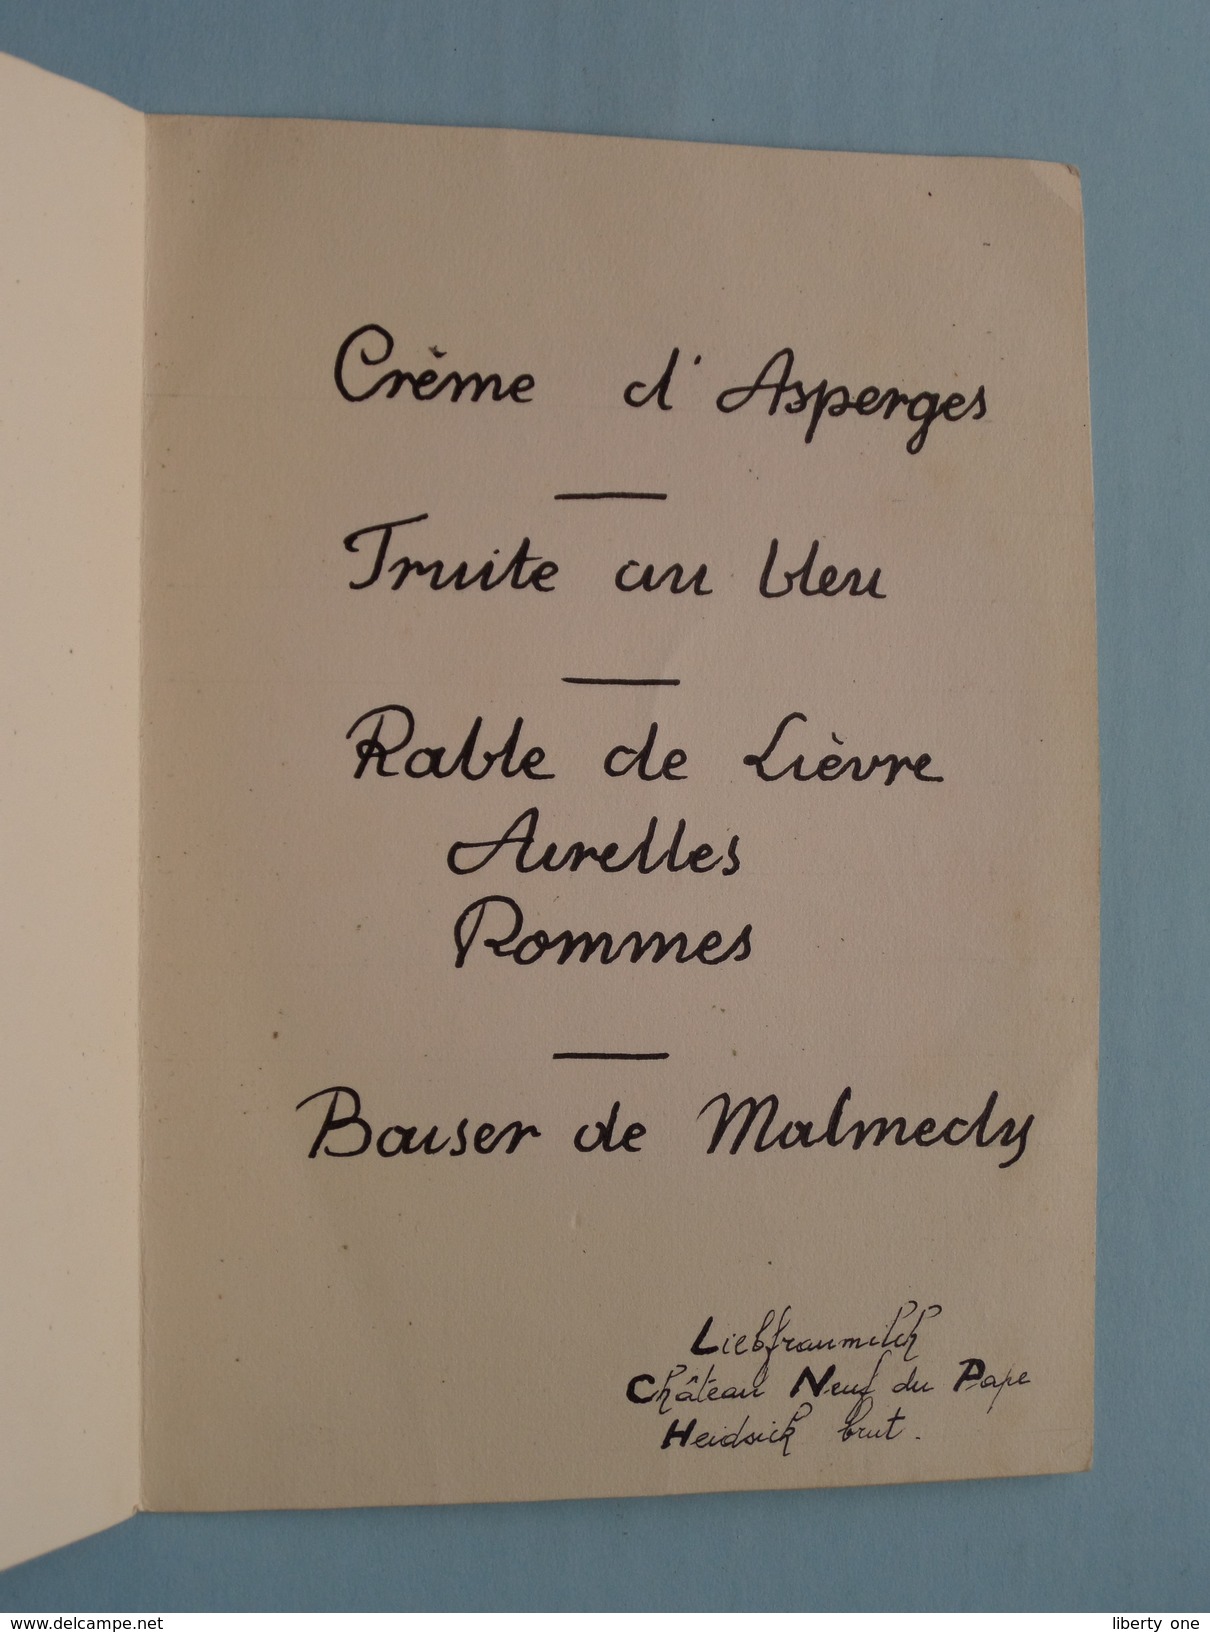 Crème d'Asperges
Truite au bleu
Rable de Lièvre
Airelles
Pommes
Baiser de Malmedy
Liebfraumilch
Château Neuf du Pape
Heidsick brut.
https://www.delcampe.net
liberty_one